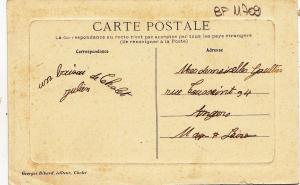 BF 11709
CARTE POSTALE
La correspondance au recto n'est pas acceptée par tous les pays étrangers
(Se renseigner à la Poste)
Correspondance
Adresse
un baiser de Cholet
julien
Mesdemoiselles Gaultier
rue Toussaint 34
Angers
M et Loire
Georges Bihard, éditeur, Cholet